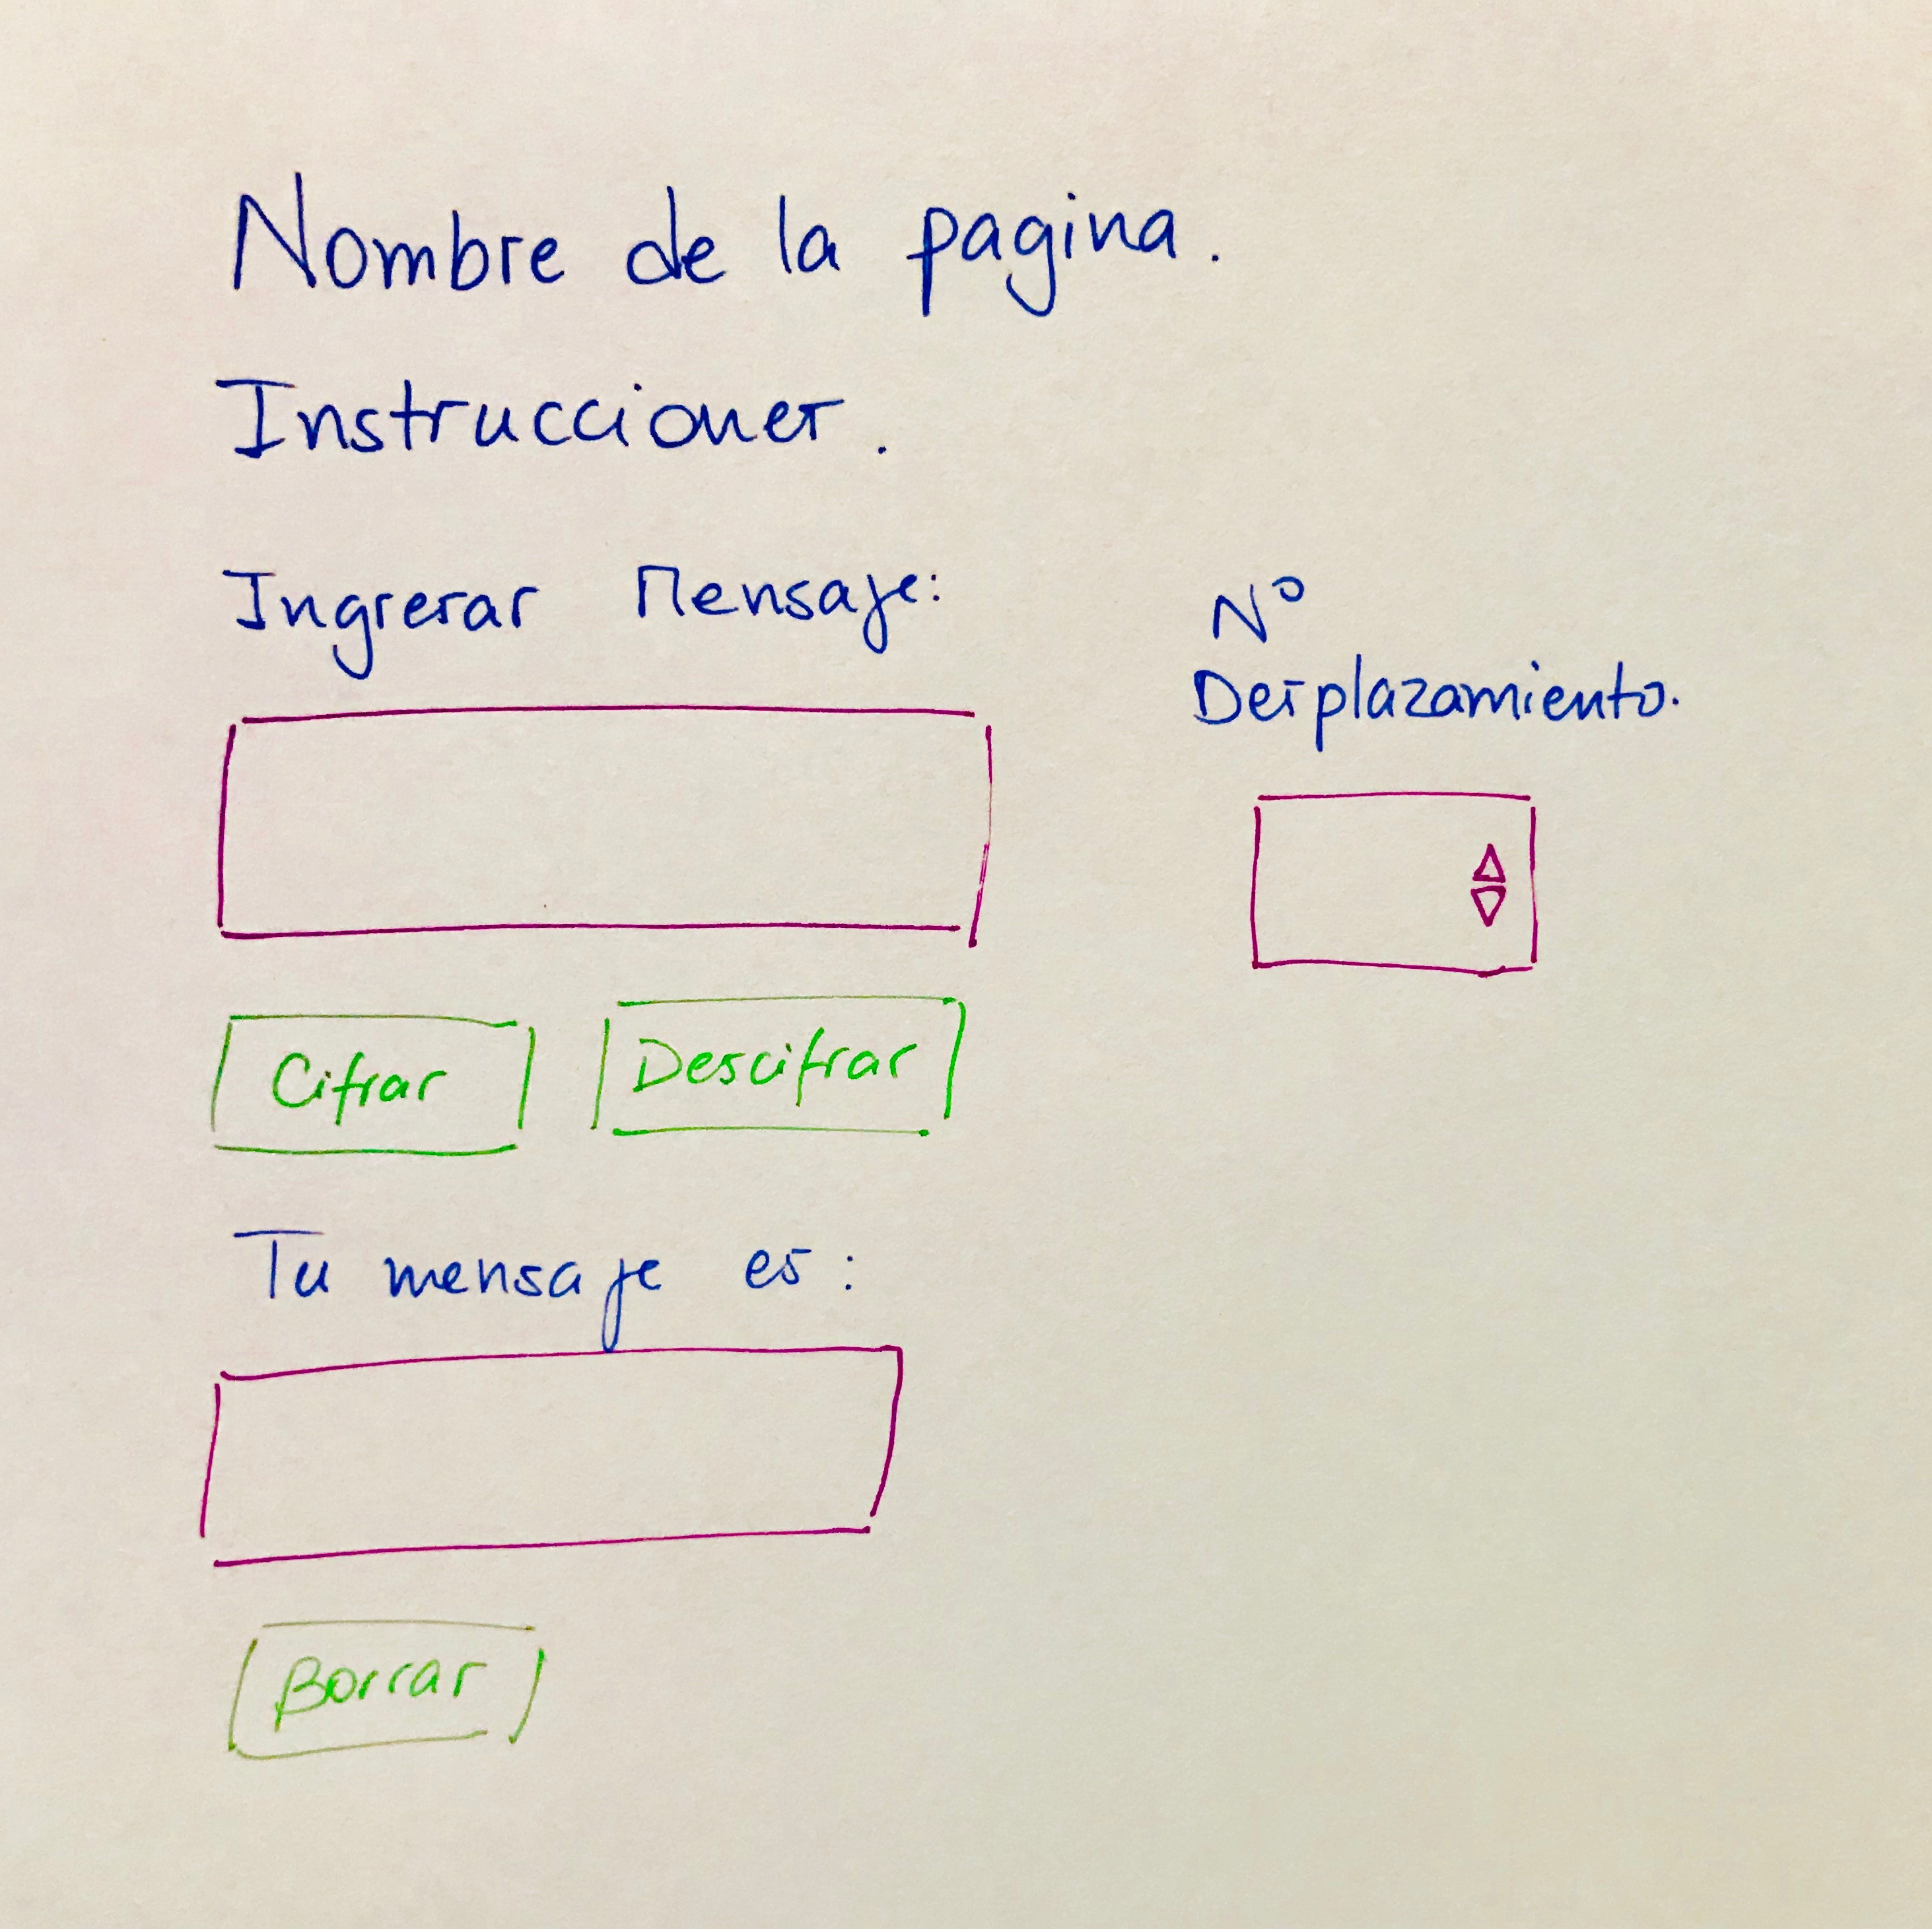 Nombre de la pagina.
Instrucciones.
Ingresar Mensaje:
Nº
Desplazamiento.
Cifrar Descifrar
Tu mensaje es:
Borrar